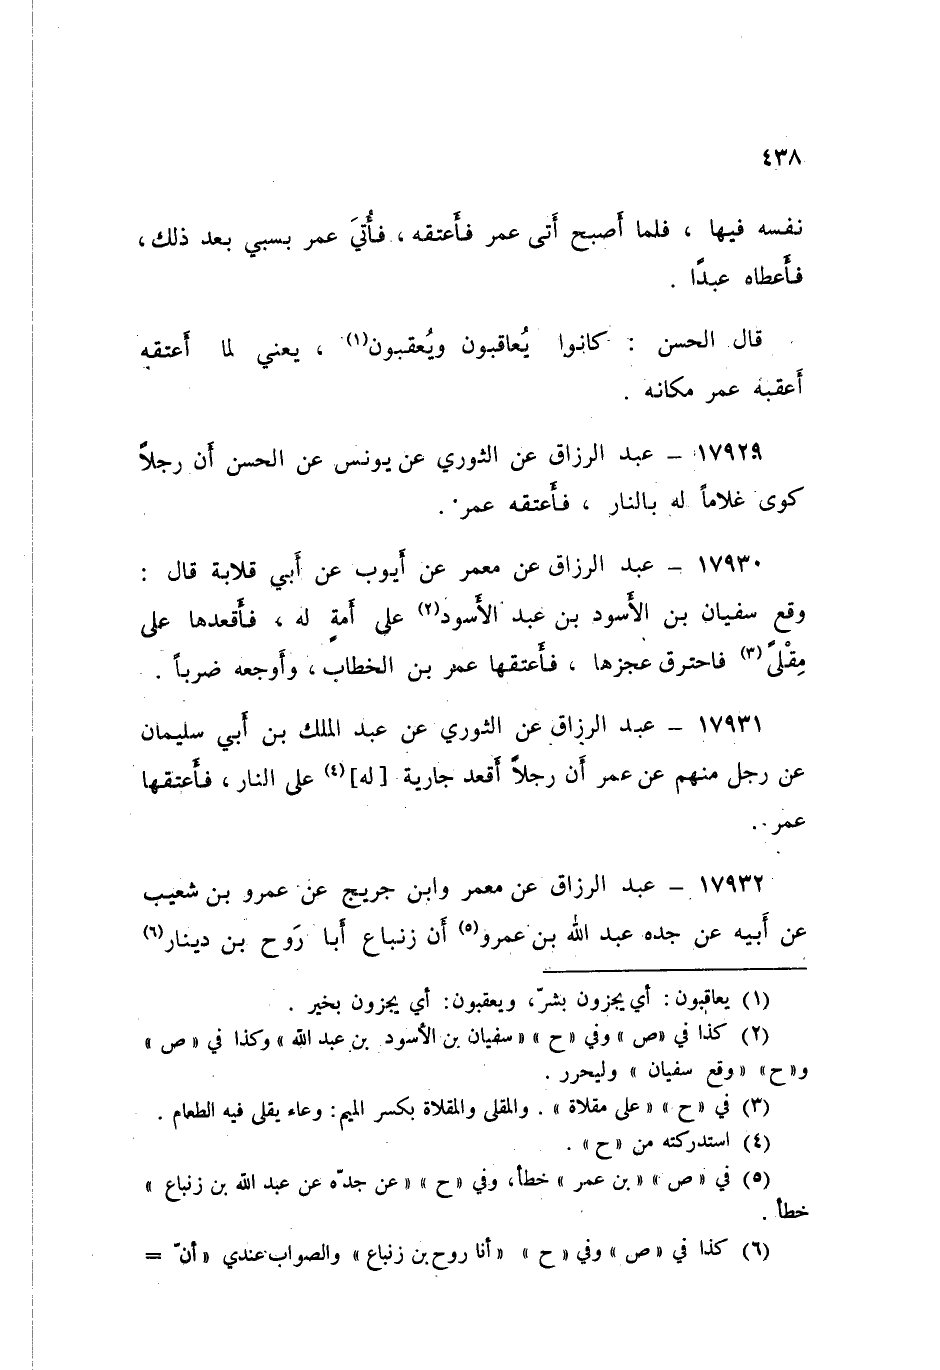 ٤٣٨
نفسه فيها ، فلما أصبح أتى عمر فأعتقه ، فأُتيَ عمر بسبي بعد ذلك ،
فأعطاه عبدًا .
قال الحسن : كانوا يُعاقبون ويُعقبون(١) ، يعني لما أعتقه
أعقبه عمر مكانه .
١٧٩٢٩ – عبد الرزاق عن الثوري عن يونس عن الحسن أن رجلاً
كوى غلاماً له بالنار ، فأعتقه عمر .
١٧٩٣٠ – عبد الرزاق عن معمر عن أيوب عن أبي قلابة قال :
وقع سفيان بن الأسود بن عبد الأسود(٢) على أمةٍ له ، فأقعدها على
مِقْلىً(٣) فاحترق عجزها ، فأعتقها عمر بن الخطاب ، وأوجعه ضرباً .
١٧٩٣١ – عبد الرزاق عن الثوري عن عبد الملك بن أبي سليمان
عن رجل منهم عن عمر أن رجلاً أقعد جارية [له](٤) على النار ، فأعتقها
عمر .
١٧٩٣٢ – عبد الرزاق عن معمر وابن جريج عن عمرو بن شعيب
عن أبيه عن جده عبد الله بن عمرو(٥) أن زنباع أبا رَوح بن دينار(٦)
(١) يعاقبون : أي يجزون بشرّ ، ويعقبون : أي يجزون بخير .
(٢) كذا في «ص» وفي «ح» «سفيان بن الأسود بن عبد الله» وكذا في «ص»
و«ح» «وقع سفيان» وليحرر .
(٣) في «ح» «على مقلاة» . والمقلى والمقلاة بكسر الميم : وعاء يقلى فيه الطعام .
(٤) استدركته من «ح» .
(٥) في «ص» «بن عمر» خطأ ، وفي «ح» «عن جدّه عن عبد الله بن زنباع»
خطأ .
(٦) كذا في «ص» وفي «ح» «أنا روح بن زنباع» والصواب عندي «أنّ =